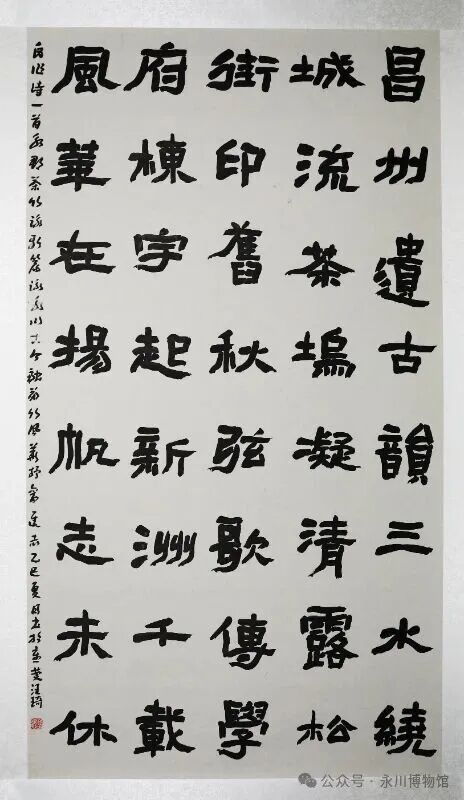 昌州遺古韻三水繞
城流茶塢凝清露松
街印舊秋弦歌傳學
府棟宇起新洲千載
風華在揚帆志未休
自作詩一首 乙巳夏月
公众号 · 永川博物馆